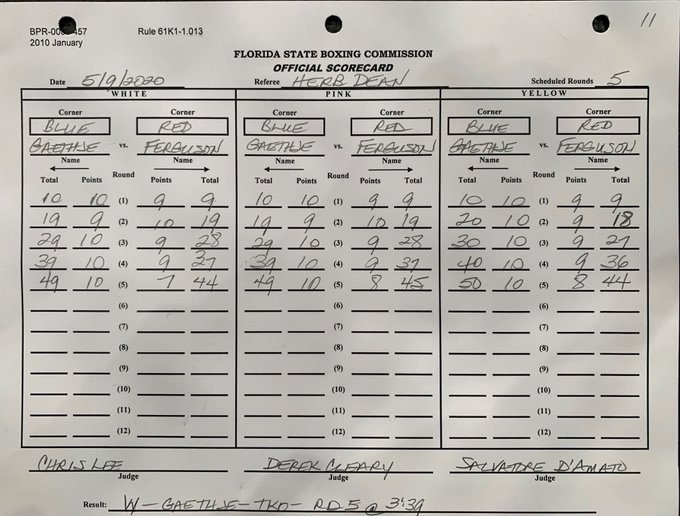 11
BPR-00 457 Rule 61K1-1.013
2010 January
FLORIDA STATE BOXING COMMISSION
OFFICIAL SCORECARD
Date 5/9/2020 Referee HERB DEAN Scheduled Rounds 5
WHITE PINK YELLOW
Corner Corner Corner Corner Corner Corner
BLUE RED BLUE RED BLUE RED
GAETHJE vs. FERGUSON GAETHJE vs. FERGUSON GAETHJE vs. FERGUSON
Name Name Name Name Name Name
Total Points Round Points Total Total Points Round Points Total Total Points Round Points Total
10 10 (1) 9 9 10 10 (1) 9 9 10 10 (1) 9 9
19 9 (2) 10 19 19 9 (2) 10 19 20 10 (2) 9 18
29 10 (3) 9 28 29 10 (3) 9 28 30 10 (3) 9 27
39 10 (4) 9 37 39 10 (4) 9 37 40 10 (4) 9 36
49 10 (5) 7 44 49 10 (5) 8 45 50 10 (5) 8 44
(6) (6) (6)
(7) (7) (7)
(8) (8) (8)
(9) (9) (9)
(10) (10) (10)
(11) (11) (11)
(12) (12) (12)
CHRIS LEE DEREK CLEARY SALVATORE D'AMATO
Judge Judge Judge
Result: W-GAETHJE-TKO-RD5 @ 3:39